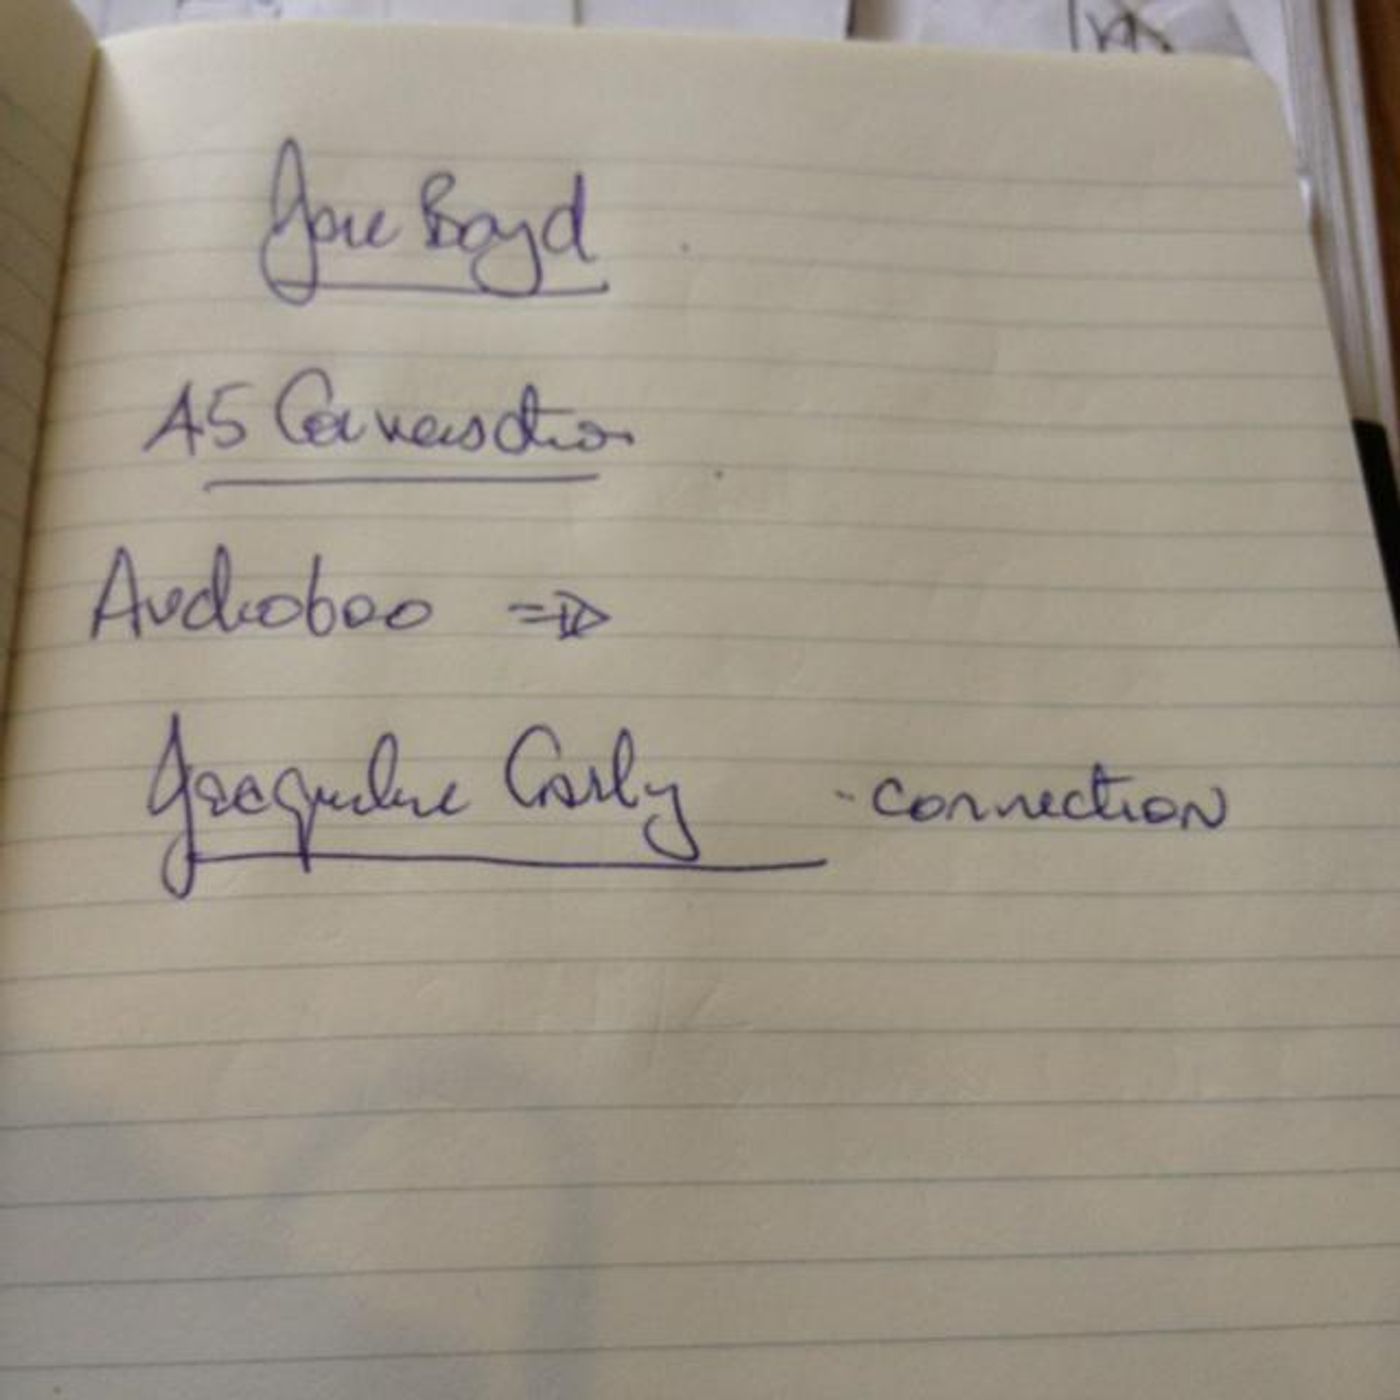 Jane Boyd
A5 Conversation
Audioboo ⇒
Jacqueline Carly - connection